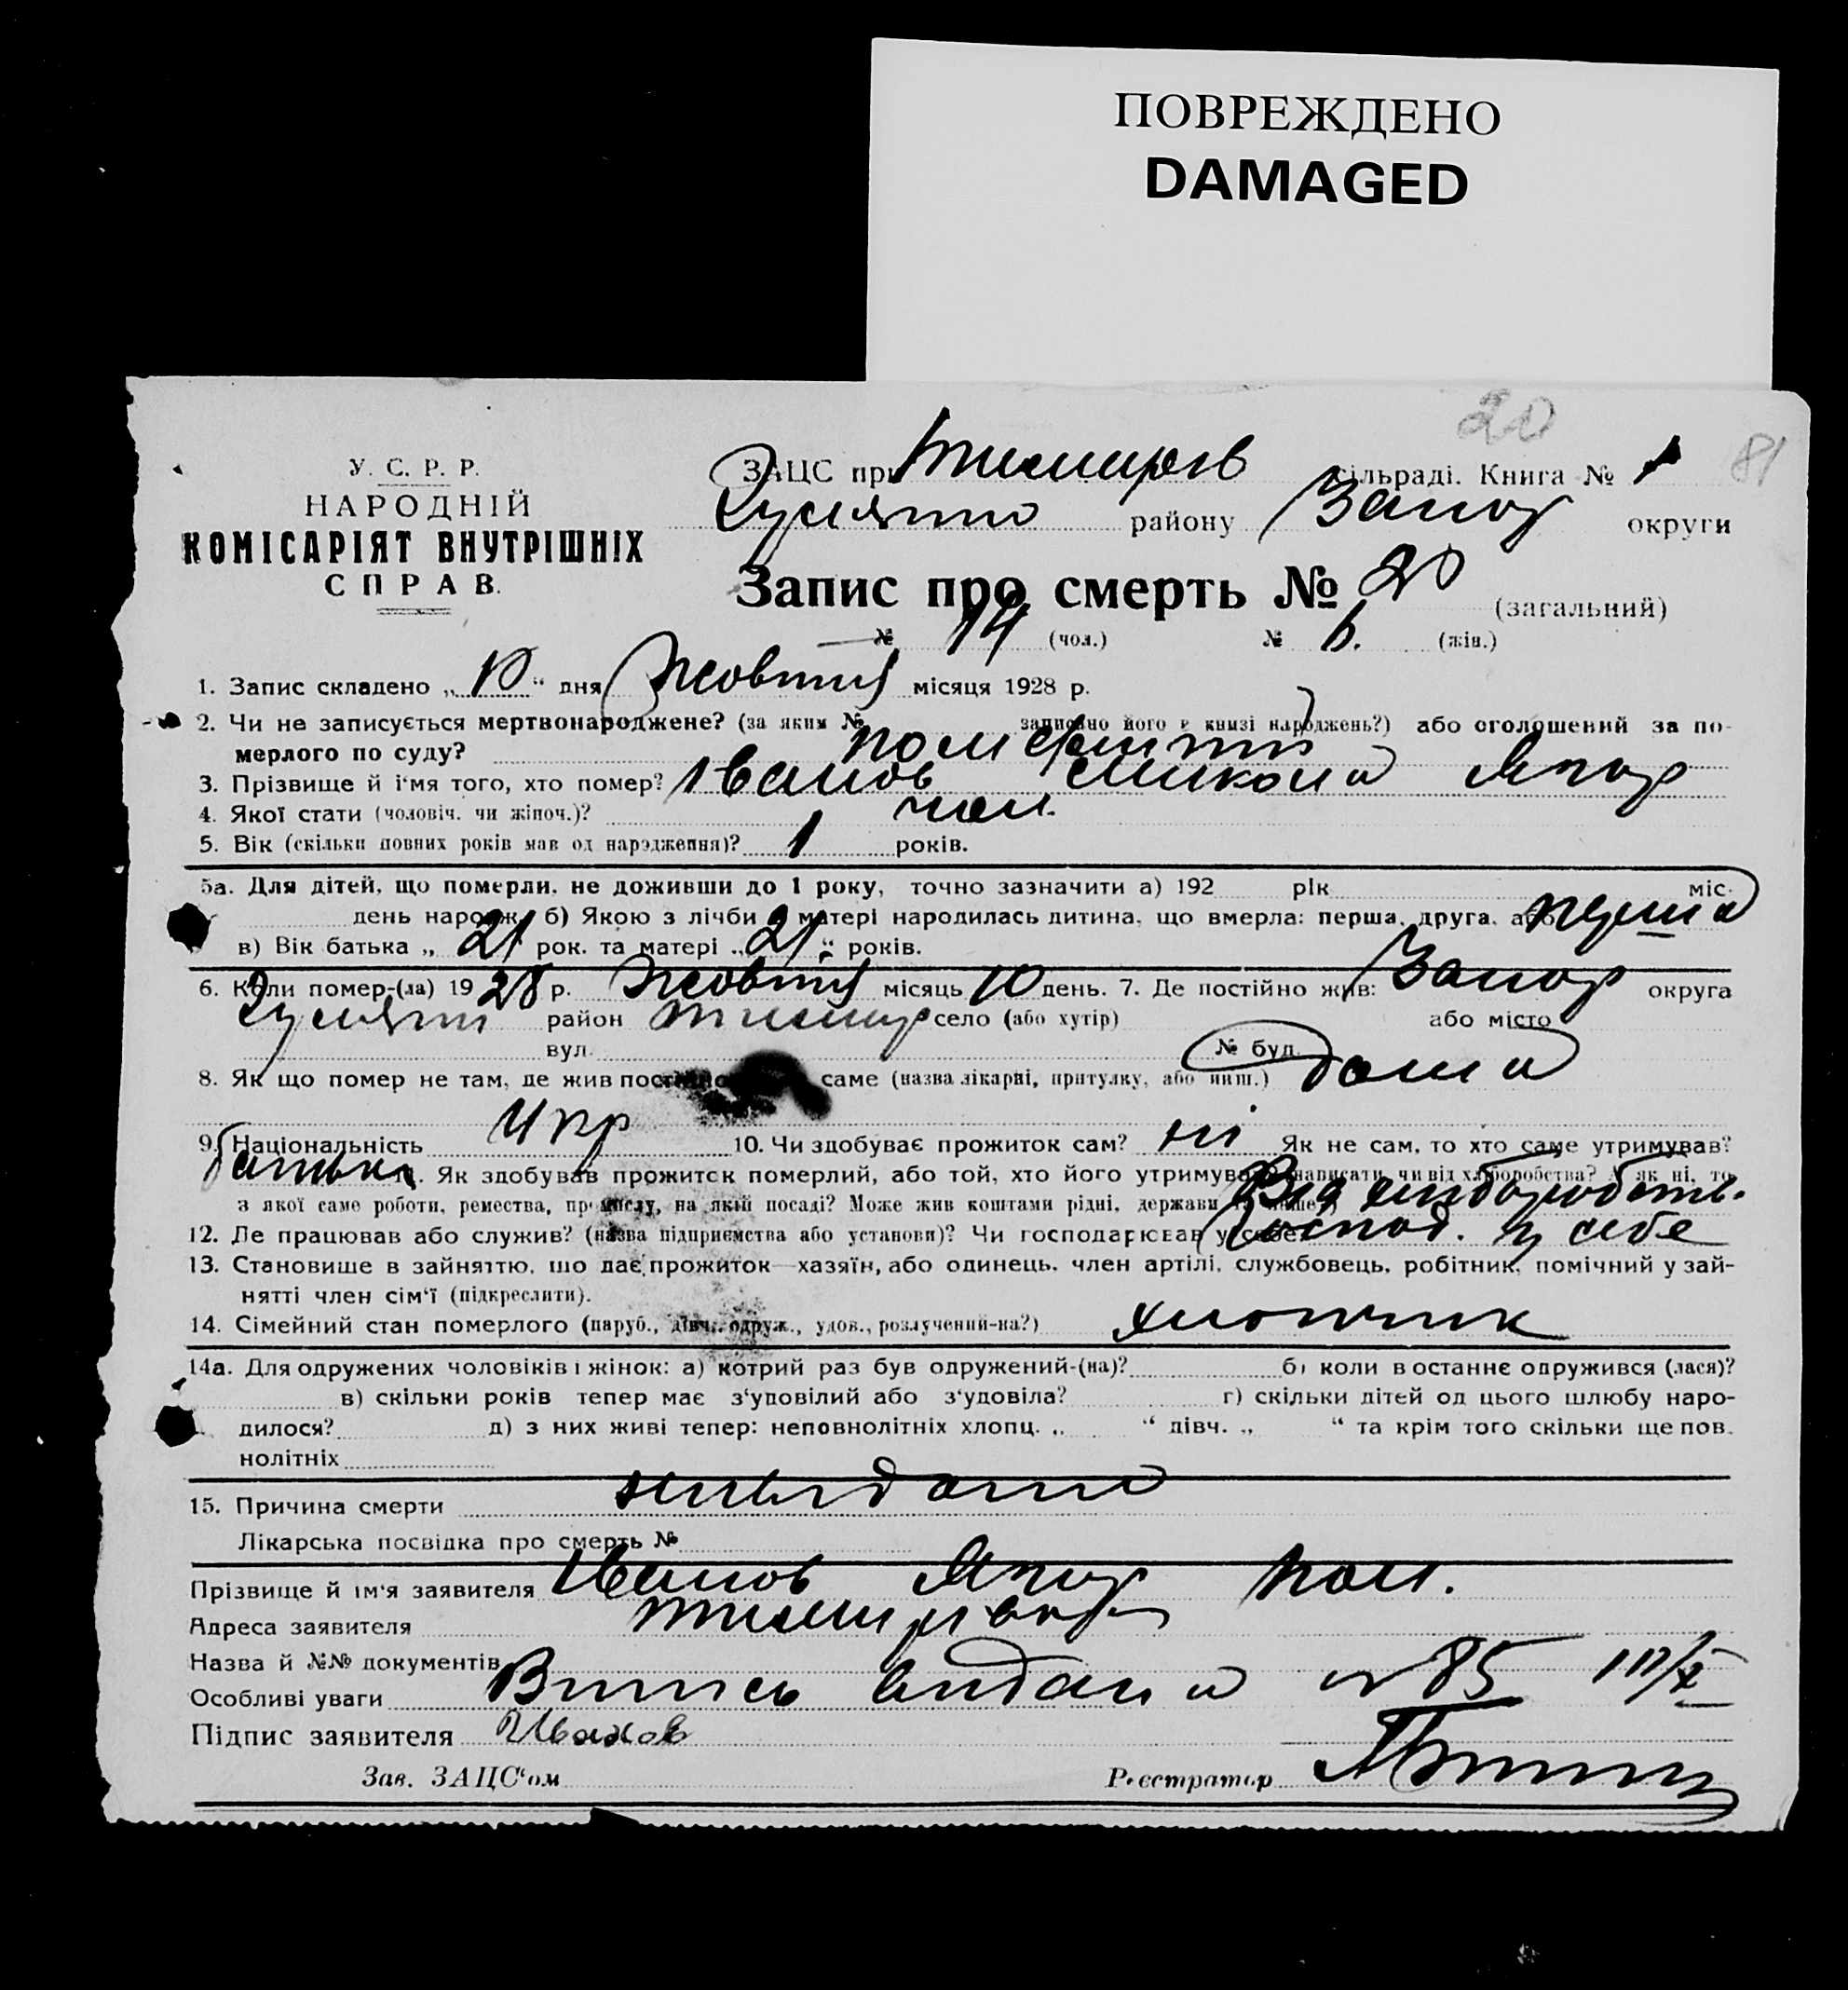 ПОВРЕЖДЕНО
DAMAGED
20
81
У. С. Р. Р.
НАРОДНІЙ
КОМІСАРІЯТ ВНУТРІШНІХ
СПРАВ.
ЗАЦС при сільраді. Книга № 1
району Запор округи
Запис про смерть № 20 (загальний)
№ 14 (чол.) № 6. (жін.)
1. Запис складено „ 10 “ дня Жовтня місяця 1928 р.
2. Чи не записується мертвонароджене? (за яким № записано його в книзі народжень?) або оголошений за по-
мерлого по суду?
3. Прізвище й і'мя того, хто помер? Іванов Микола
4. Якої стати (чоловіч. чи жіноч.)? чол.
5. Вік (скільки повних років мав од народження)? 1 років.
5а. Для дітей, що померли, не доживши до 1 року, точно зазначити а) 192 рік міс.
день народж. б) Якою з лічби у матері народилась дитина, що вмерла: перша, друга, або перша
в) Вік батька „ 21 рок. та матері „ 21 “ років.
6. Коли помер-(ла) 1928 р. Жовтня місяць 10 день. 7. Де постійно жив: Запор округа
район село (або хутір) або місто
вул. № буд.
8. Як що помер не там, де жив постійно саме (назва лікарні, притулку, або инш.) дома
9. Національність Укр 10. Чи здобуває прожиток сам? ні Як не сам, то хто саме утримував?
батько 11. Як здобував прожиток померлий, або той, хто його утримував (написати, чи від хліборобства? А як ні, то
з якої саме роботи, ремества, промислу, на якій посаді? Може жив коштами рідні, держави Від хліборобств.
12. Де працював або служив? (назва підприємства або установи)? Чи господарював у себе? Господ. у себе
13. Становище в зайняттю, що дає прожиток—хазяїн, або одинець, член артілі, службовець, робітник, помічний у зай-
нятті член сім'ї (підкреслити).
14. Сімейний стан померлого (паруб., дівч., одруж., удов., розлучений-на?) хлопчик
14а. Для одружених чоловіків і жінок: а) котрий раз був одружений-(на)? б) коли в останнє одружився (лася)?
в) скільки років тепер має з'уповілий або з'удовіла? г) скільки дітей од цього шлюбу наро-
дилося? д) з них живі тепер: неповнолітніх хлопц. „ “ дівч. „ “ та крім того скільки ще пов.
нолітніх
15. Причина смерти невідома
Лікарська посвідка про смерть №
Прізвище й ім'я заявителя Іванов
Адреса заявителя
Назва й №№ документів
Особливі уваги Випись видана № 85 10/X
Підпис заявителя Иванов
Зав. ЗАЦС'ом Реєстратор